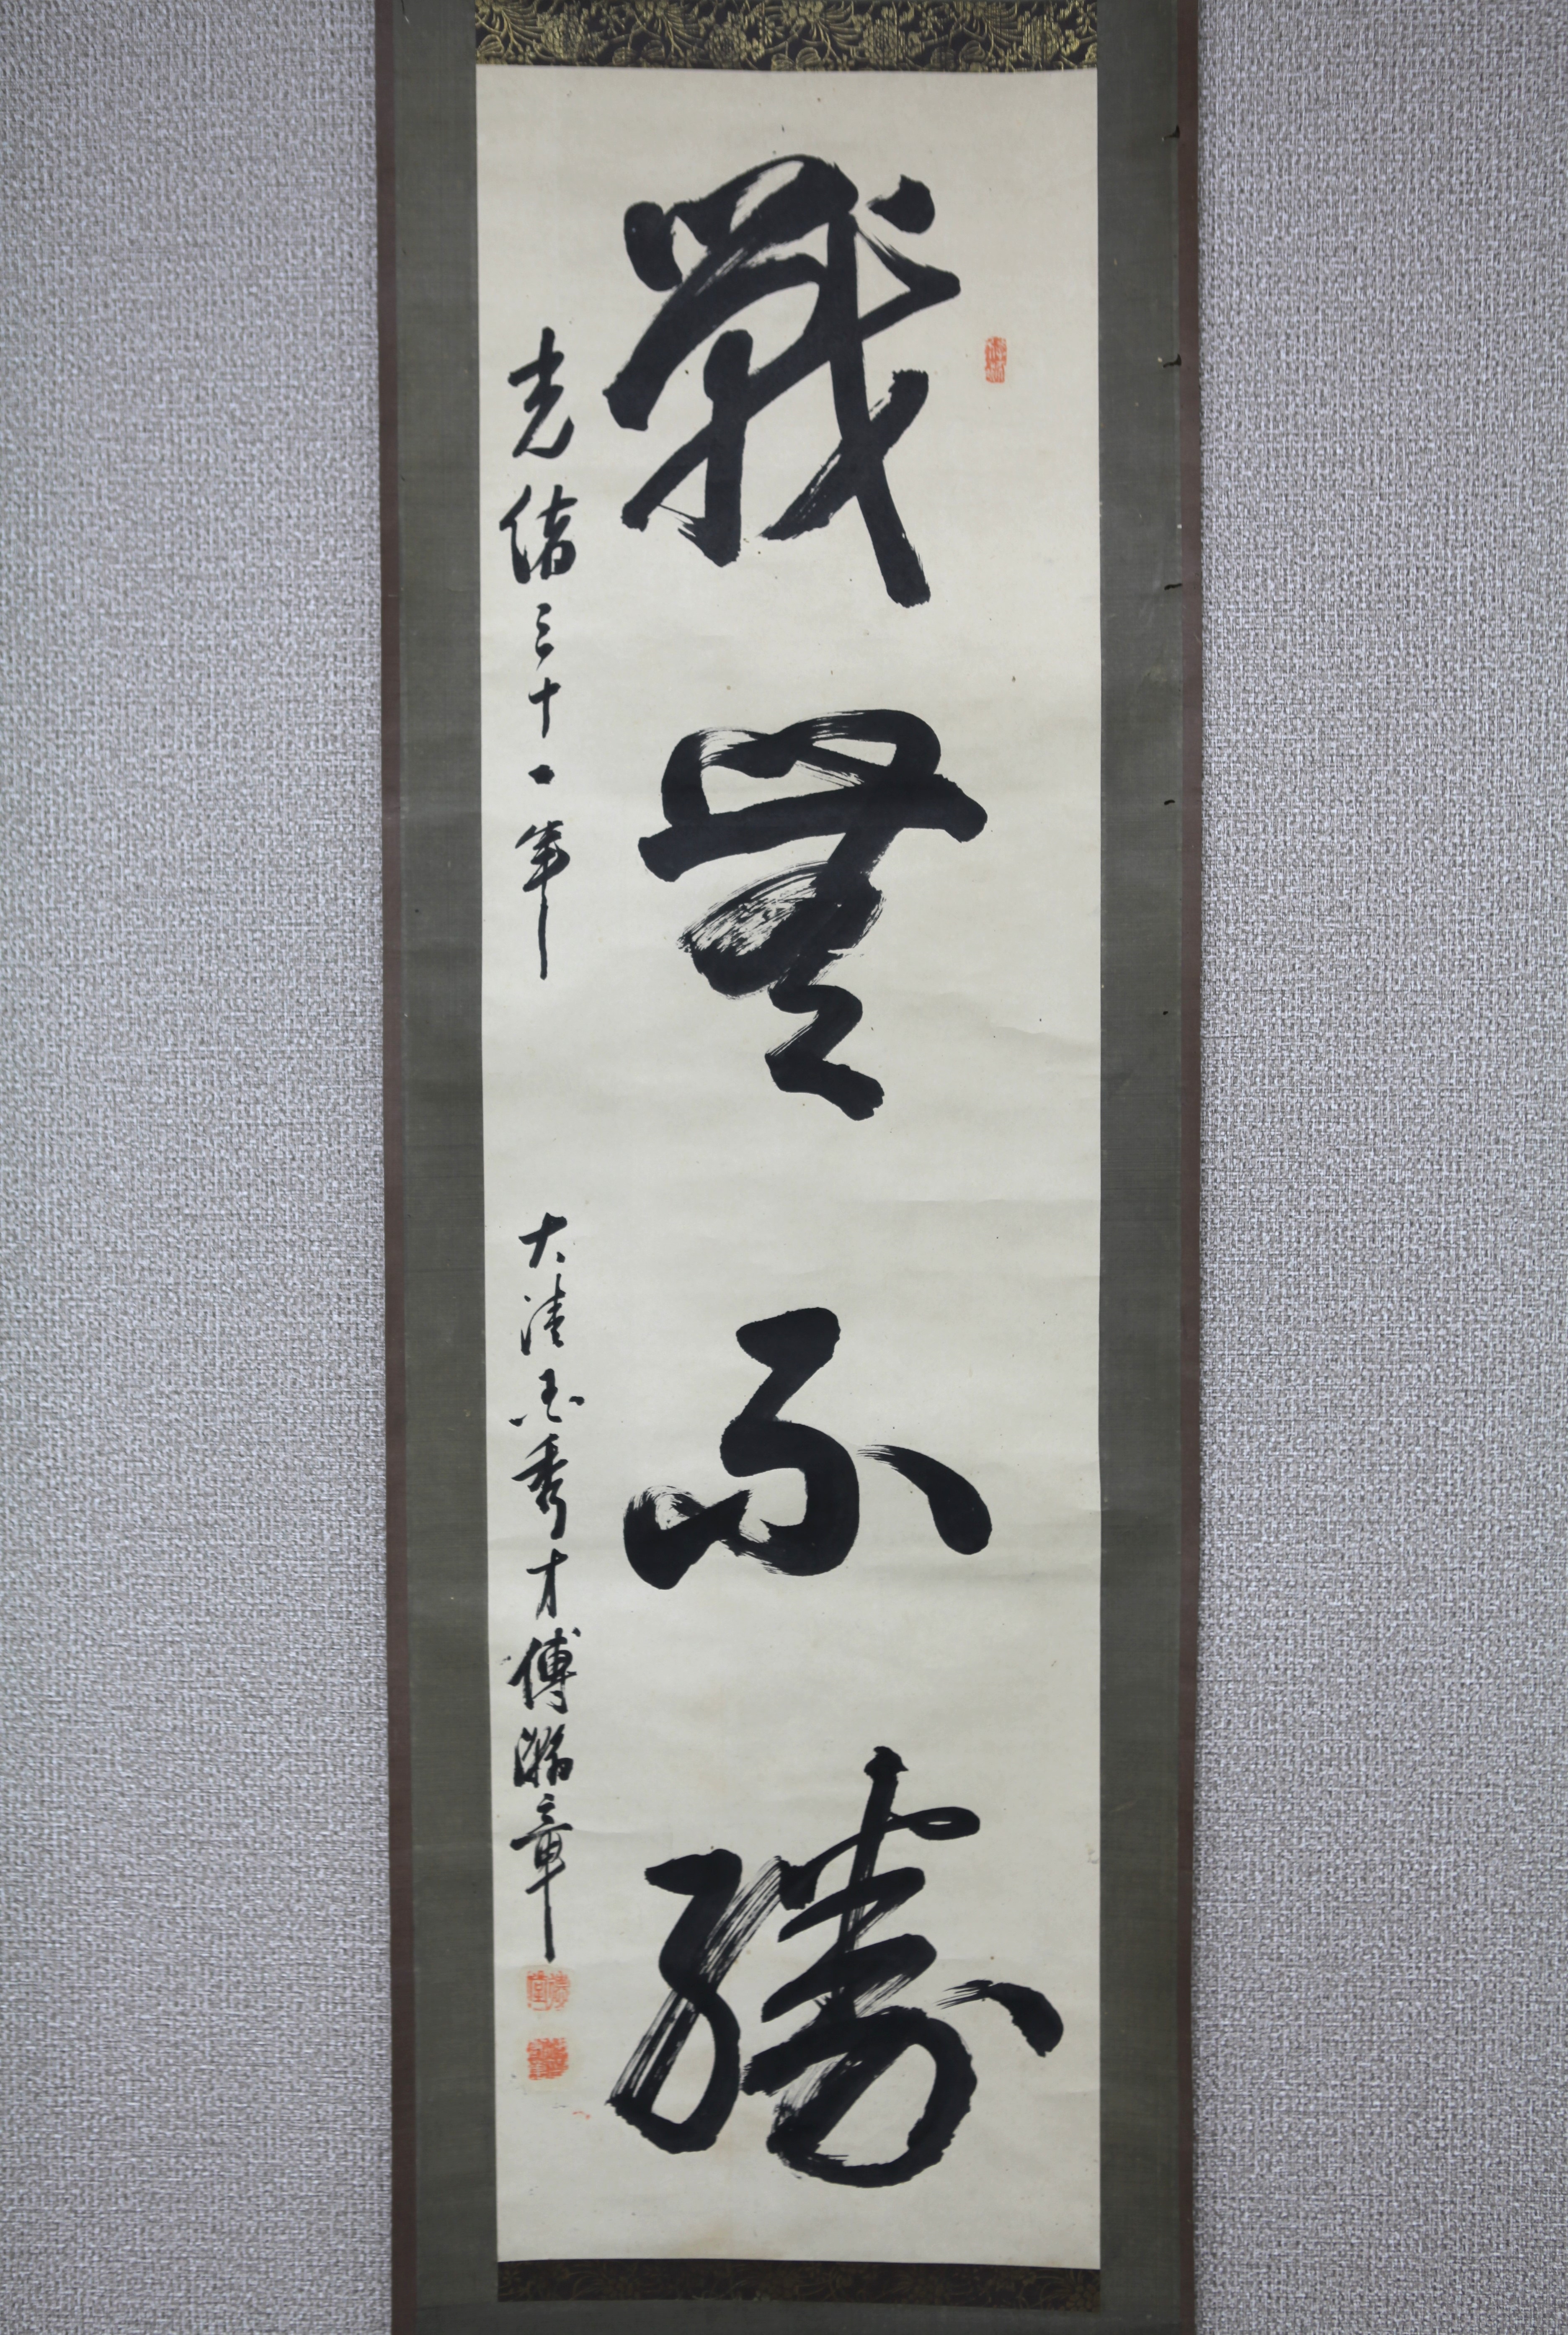 戰無不勝
光緒三十一年 大清國秀才傅瀚章